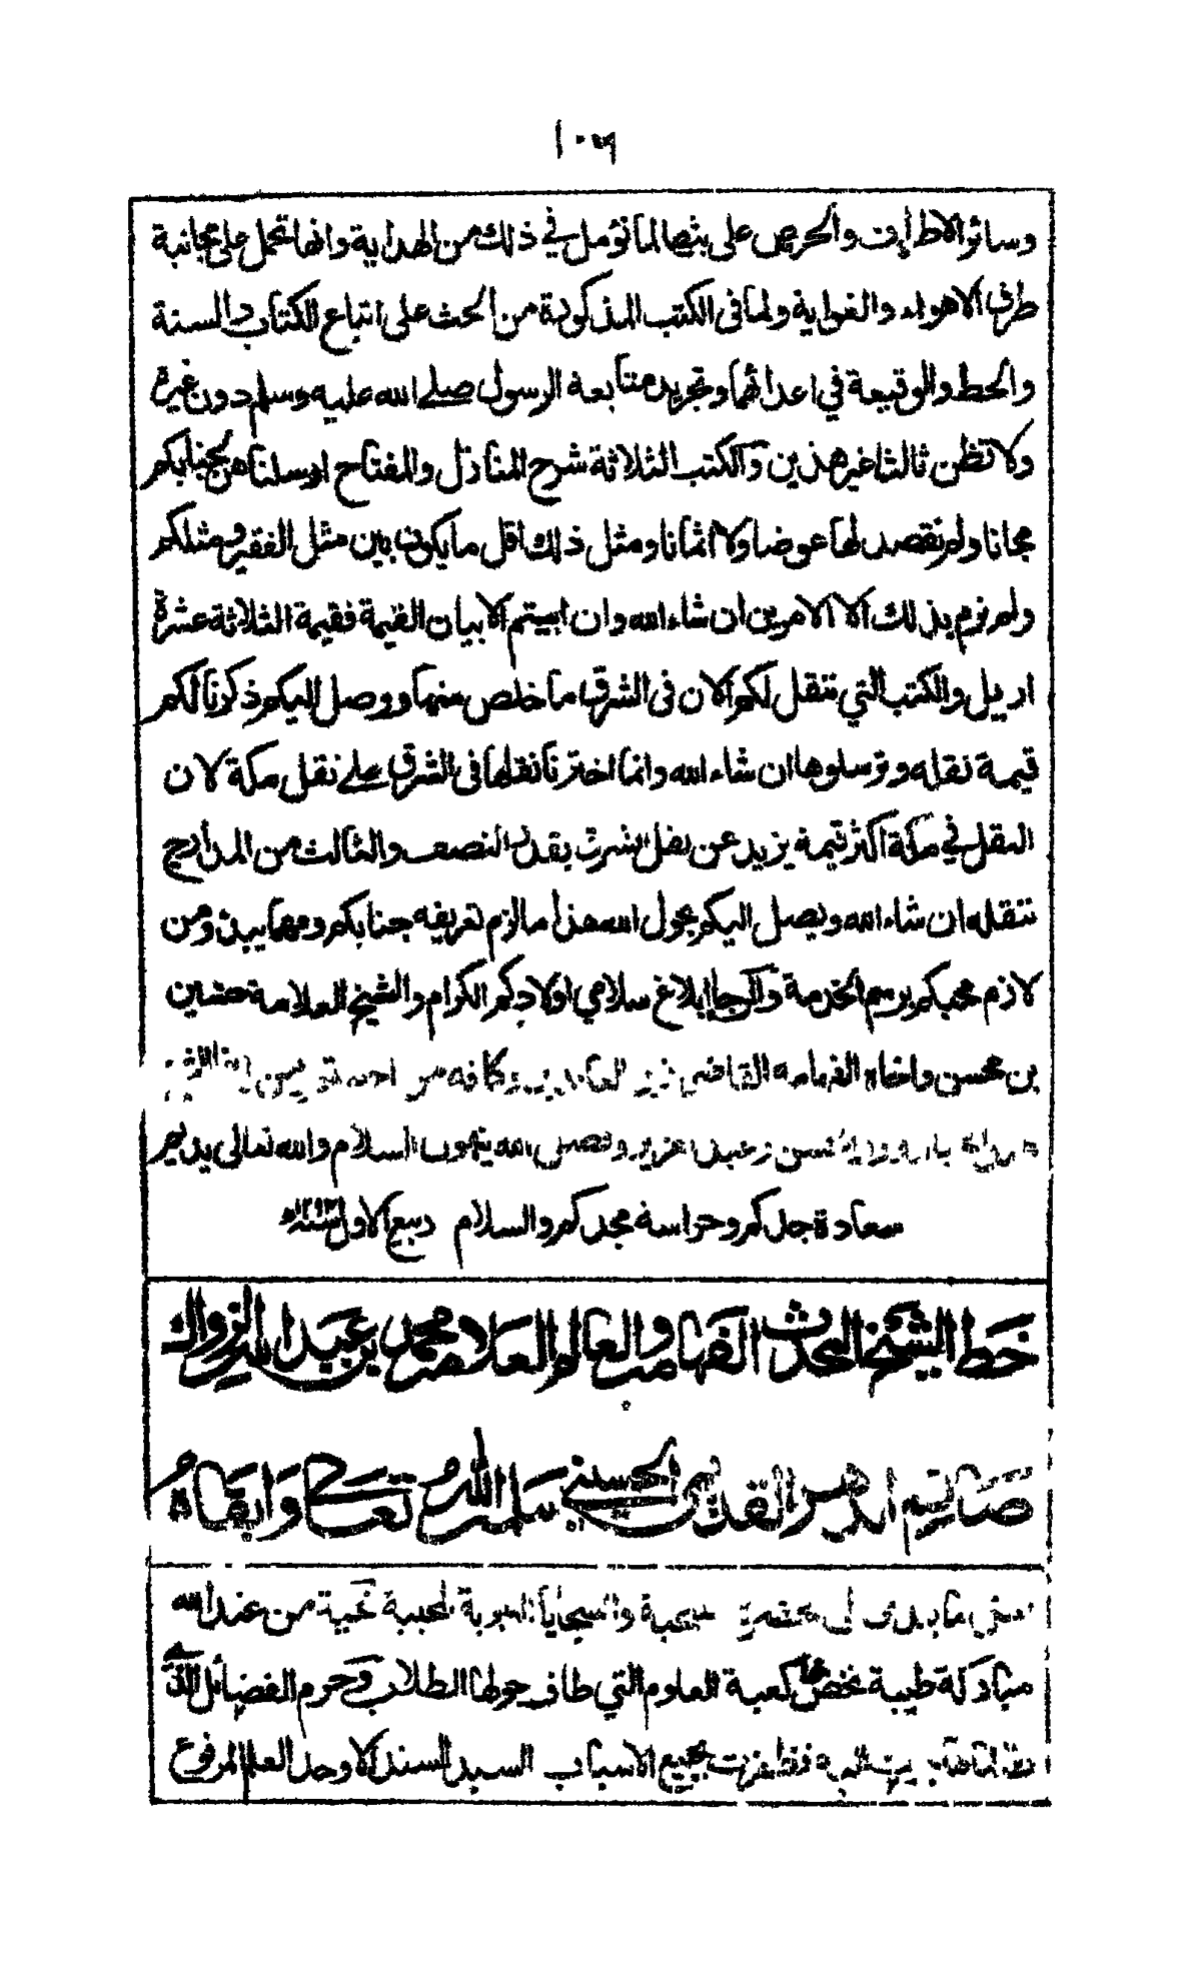 ١٠٦
وسائر الاطراف والحرص على بثها لما نؤمل في ذلك من الهداية وانها تحمل على مجانبة
طرف الاهواء والغواية ولما في الكتب المذكورة من الحث على اتباع الكتاب والسنة
والحط والوقيعة في اعدائهما وتجريد متابعة الرسول صلى الله عليه وسلم دون غيره
ولا تظن ثالثا غير هذين والكتب الثلاثة شرح المنازل والمفتاح ارسلناهن لجنابكم
مجانا ولم نقصد لها عوضا ولا اثمانا ومثل ذلك اقل ما يكون بين مثل الفقير ومثلكم
ولم نرم بذلك الا الامرين ان شاء الله وان ابيتم الا بيان القيمة فقيمة الثلاثة عشرة
اريل والكتب التي تنقل لكم الان في الشرق ما خلص منها ووصل اليكم ذكرنا لكم
قيمة نقله وترسلوها ان شاء الله وانما اخترنا نقلها في الشرق على نقل مكة لان
النقل في مكة اكثر قيمة يزيد عن نقل الشرق بقدر النصف والثالث من المدارج
ننقله ان شاء الله ويصل اليكم بحول الله هذا ما لزم تعريفه جنابكم ومهما يبدو من
لازم محبكم برسم الخدمة والرجا ابلاغ سلامي اولادكم الكرام والشيخ العلامة حسين
بن محسن واخاه الفهامة القاضي زين العابدين وكافة من
السلام والله تعالى يديم
سعادة جدكم وحراسة مجدكم والسلام ربيع الاول سنة ١٢٩٣ه
خط الشيخ المحدث الفهامة والعالم العلامة محمد بن عبد الله الزواك
صائم الدهر القديمي الحسيني سلمه الله تعالى وابقاه
من عند الله
مباركة طيبة نخص بها كعبة العلوم التي طاف حولها الطلاب وحرم الفضائل الذي
بجميع الاسباب السيد السند الاوحد العلم المرفوع